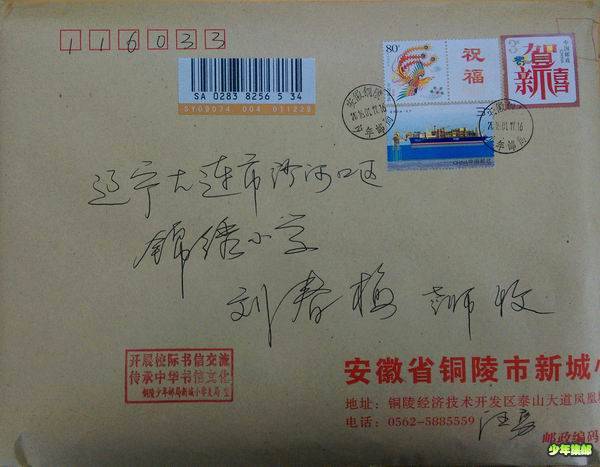 116033
80分
祝福
贺
新
禧
中国邮政
SA 0283 8256 5 34
SY09074 004 011229
2016.01.17.16
2016.01.17.16
CHINA 中国邮政
辽宁大连市沙河口区
锦绣小学
刘春梅 老师 收
开展校际书信交流
传承中华书信文化
铜陵少年邮局新城小学支局 宣
安徽省铜陵市新城小
地址：铜陵经济技术开发区泰山大道凤凰
电话：0562-5885559
邮政编码
少年集邮